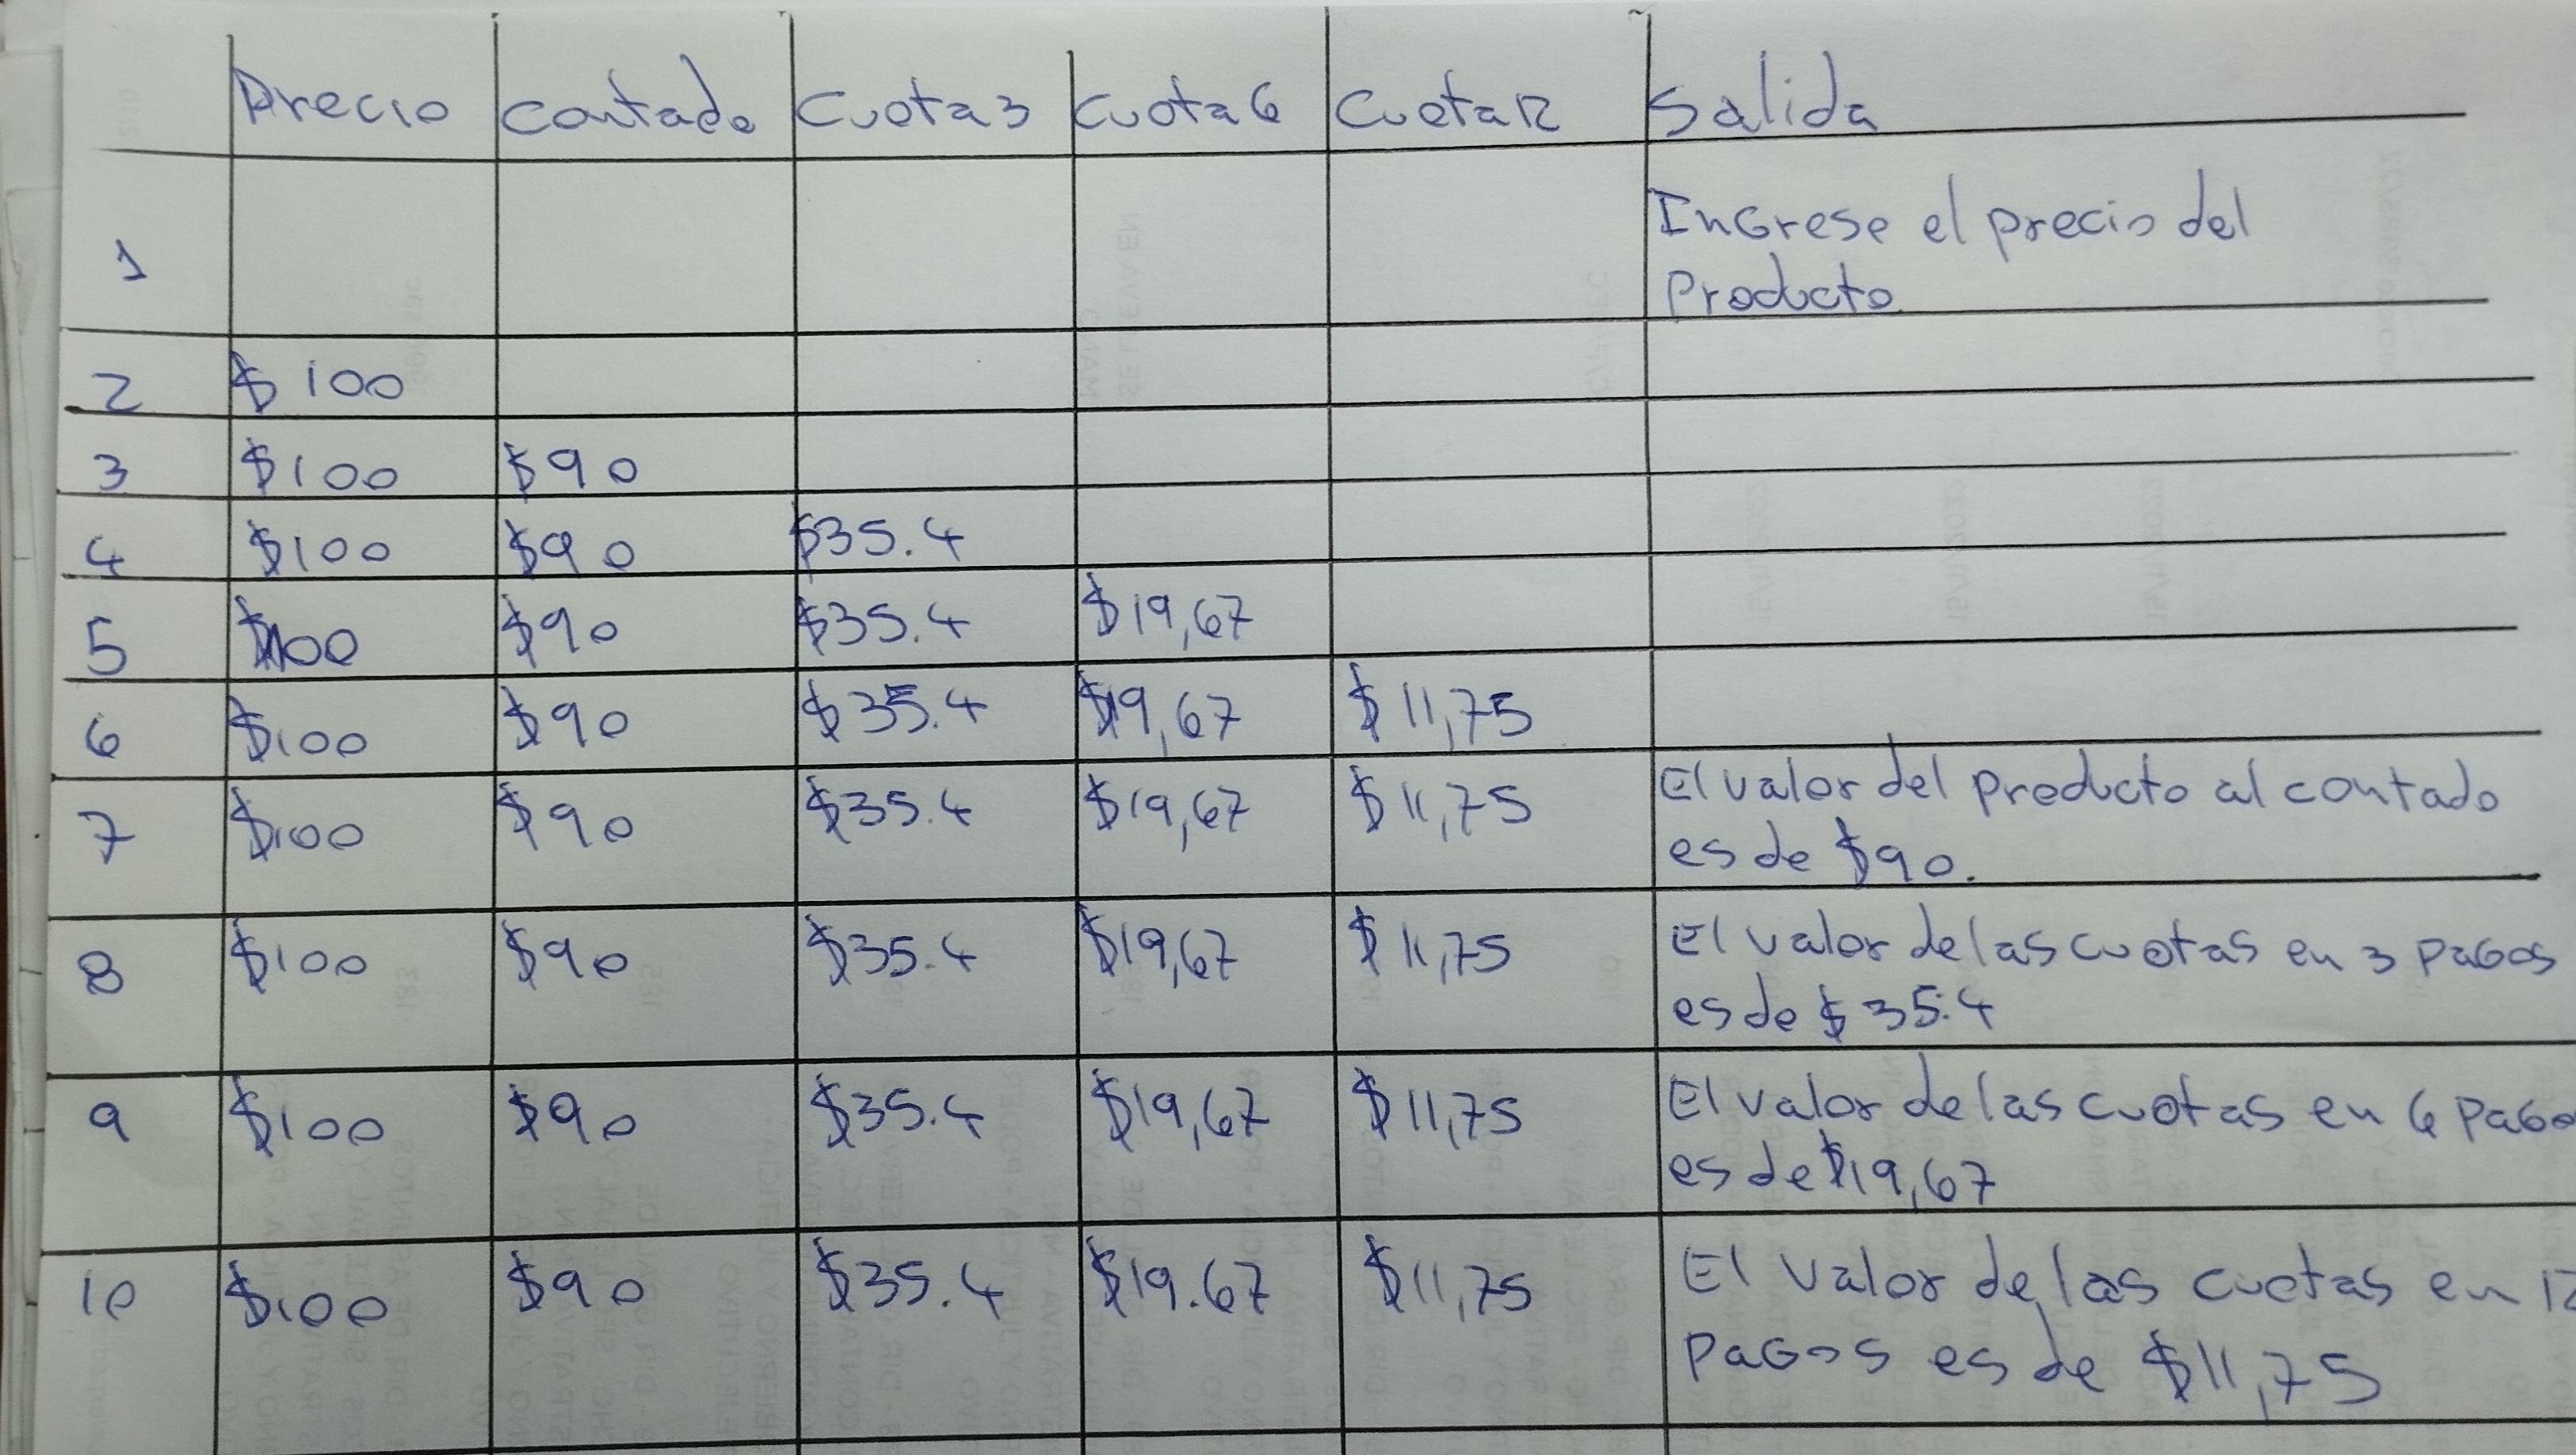 Precio contado Cuota3 Cuota6 Cuota12 Salida
1 Ingrese el precio del
Producto
2 $100
3 $100 $90
4 $100 $90 $35.4
5 $100 $90 $35.4 $19,67
6 $100 $90 $35.4 $19,67 $11,75
7 $100 $90 $35.4 $19,67 $11,75 El valor del producto al contado
es de $90.
8 $100 $90 $35.4 $19,67 $11,75 El valor de las cuotas en 3 pagos
es de $35.4
9 $100 $90 $35.4 $19,67 $11,75 El valor de las cuotas en 6 pago
es de $19,67
10 $100 $90 $35.4 $19.67 $11,75 El valor de las cuotas en 12
pagos es de $11,75